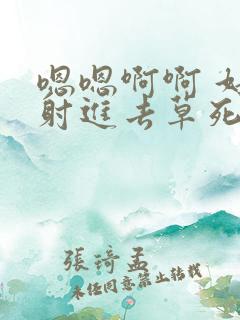 嗯嗯啊啊
射進去草死
張琦孟
未经同意禁止转载